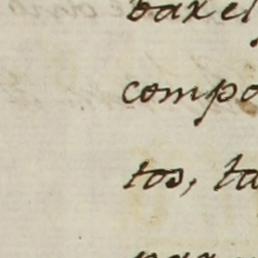 baxel
compo
tos, ta